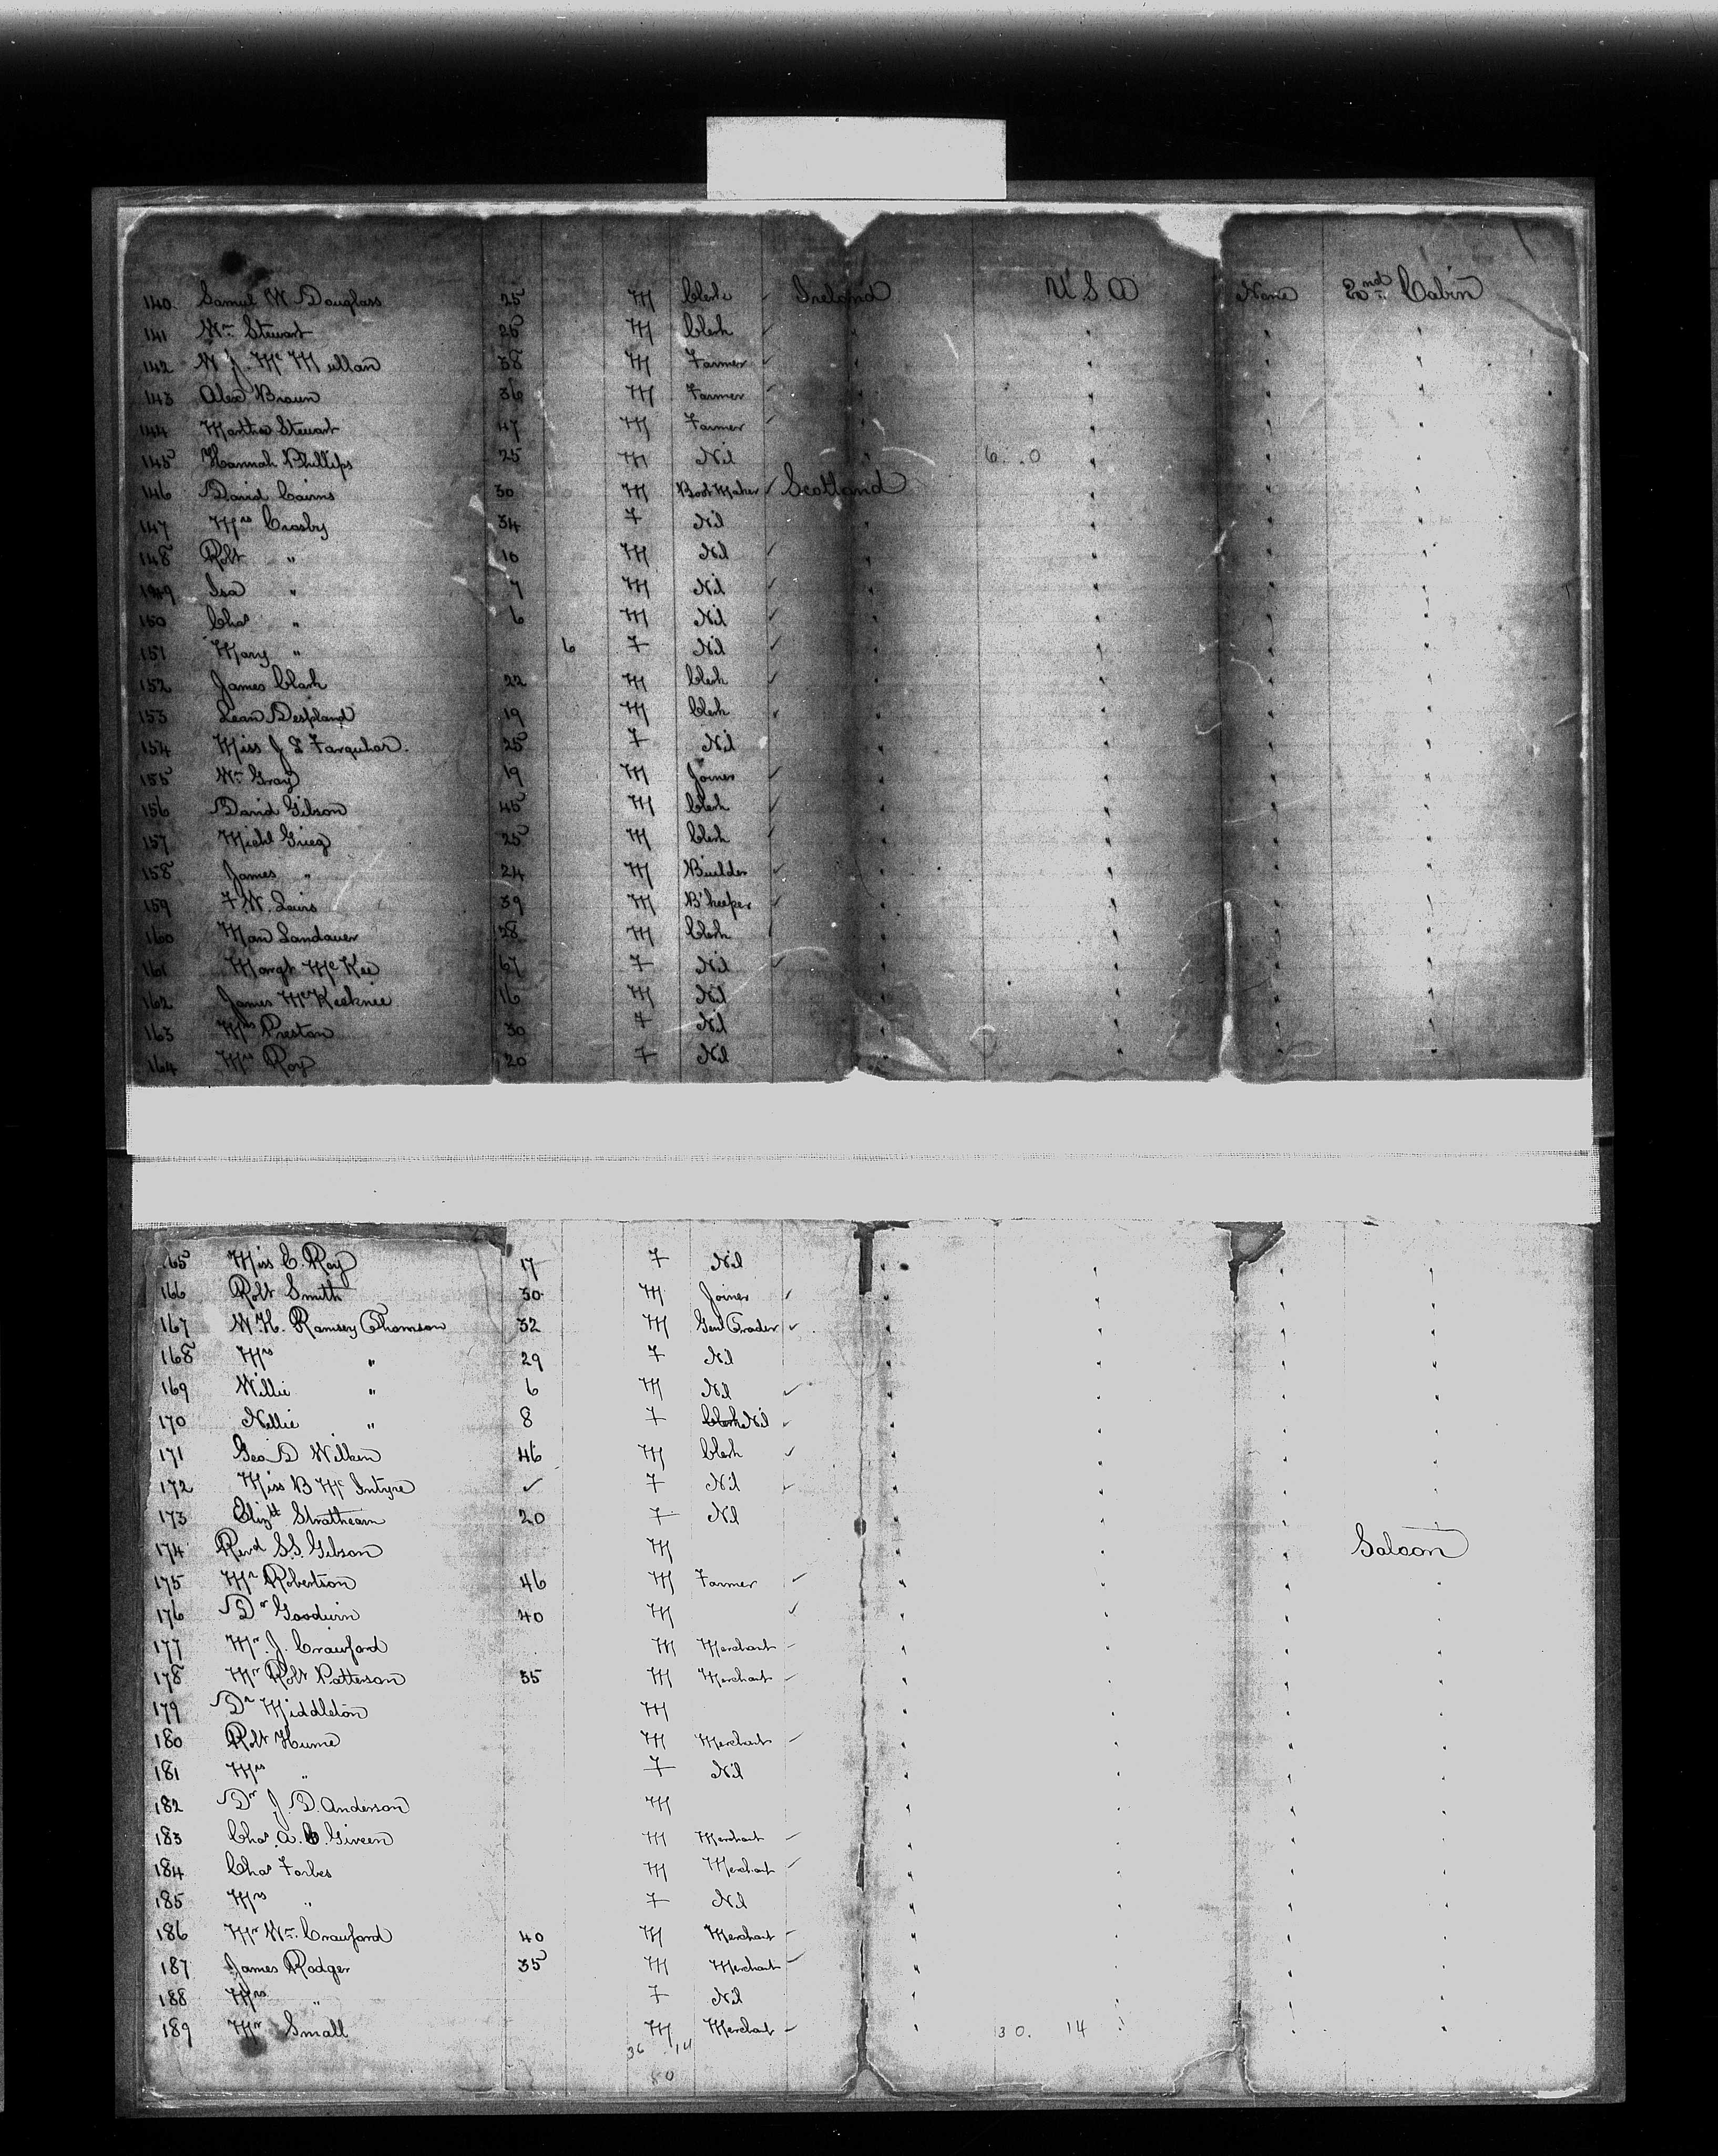 140. Samul W Douglass 25 M Clerk Ireland U S A None 2nd Cabin
141 Wm Stewart 25 M Clerk " " " "
142 W J. Mc Mullan 38 M Farmer " " " "
143 Alex Brown 36 M Farmer " " " "
144 Martha Stewart 47 M Farmer " " " "
145 Hannah Phillips 25 M Nil " 6 . 0 " " "
146 David Cairns 30 M Boot Maker Scotland " " "
147 Mrs Crosby 34 F Nil " " " "
148 Robt " 10 M Nil " " " "
149 Isa " 7 M Nil " " " "
150 Chas " 6 M Nil " " " "
151 Mary " 6 F Nil " " " "
152 James Clark 22 M Clerk " " " "
153 Despland 19 M Clerk " " " "
154 Miss J S Farquhar. 25 F Nil " " " "
155 Wm Gray 19 M Joiner " " " "
156 David Gibson 45 M Clerk " " " "
157 Michl Grieg 25 M Clerk " " " "
158 James " 24 M Builder " " " "
159 F. W. 39 M B'keeper " " " "
160 Landauer 28 M Clerk " " " "
161 Margt McKee 67 F Nil " " " "
162 James McKecknie 16 M Nil " " " "
163 Mrs Preston 30 F Nil " " " "
164 Mrs Roy 20 F Nil " " " "
165 Miss C. Roy 17 F Nil " " " "
166 Robt Smith 30 M Joiner " " " "
167 W. H. Ramsey Thomson 32 M Genl Trader " " " "
168 Mrs " 29 F Nil " " " "
169 Willie " 6 M Nil " " " "
170 Nellie " 8 F Clerk Nil " " " "
171 Geo D Wilken 46 M Clerk " " " "
172 Miss B McIntyre ✓ F Nil " " " "
173 Elizth Strathearn 20 F Nil " " " "
174 Revd S. S. Gibson M " " " Saloon
175 Mr Robertson 46 M Farmer " " " "
176 Dr Goodwin 40 M " " " "
177 Mr. J. Crawford M Merchant " " " "
178 Mr Robt Patterson 35 M Merchant " " " "
179 Dr Middleton M " " " "
180 Robt Hume M Merchant " " " "
181 Mrs " F Nil " " " "
182 Dr J. D. Anderson M " " " "
183 Chas. A. C. Giveen M Merchant " " " "
184 Chas Forbes M Merchant " " " "
185 Mrs " F Nil " " " "
186 Mr Wm. Crawford 40 M Merchant " " " "
187 James Rodger 35 M Merchant " " " "
188 Mrs " F Nil " " " "
189 Mr Small M Merchant " 30. 14 " " "
36 14
50